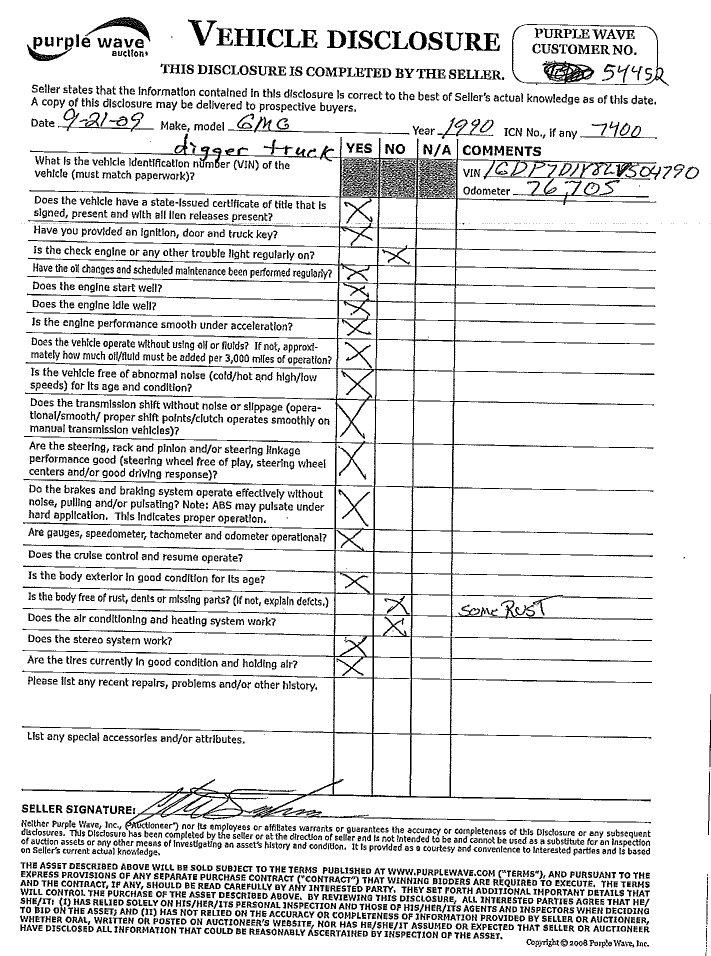 purple wave
auction
VEHICLE DISCLOSURE
PURPLE WAVE
CUSTOMER NO.
54452
THIS DISCLOSURE IS COMPLETED BY THE SELLER.
Seller states that the information contained in this disclosure is correct to the best of Seller's actual knowledge as of this date.
A copy of this disclosure may be delivered to prospective buyers.
Date 9-21-09 Make, model GMC Year 1990 ICN No., if any 7400
digger truck YES NO N/A COMMENTS
What is the vehicle identification number (VIN) of the
vehicle (must match paperwork)?
VIN
Odometer 76,705
Does the vehicle have a state-issued certificate of title that is
signed, present and with all lien releases present? X
Have you provided an ignition, door and truck key? X
Is the check engine or any other trouble light regularly on? X
Have the oil changes and scheduled maintenance been performed regularly? X
Does the engine start well? X
Does the engine idle well? X
Is the engine performance smooth under acceleration? X
Does the vehicle operate without using oil or fluids? If not, approxi-
mately how much oil/fluid must be added per 3,000 miles of operation? X
Is the vehicle free of abnormal noise (cold/hot and high/low
speeds) for its age and condition? X
Does the transmission shift without noise or slippage (opera-
tional/smooth/ proper shift points/clutch operates smoothly on
manual transmission vehicles)? X
Are the steering, rack and pinion and/or steering linkage
performance good (steering wheel free of play, steering wheel
centers and/or good driving response)? X
Do the brakes and braking system operate effectively without
noise, pulling and/or pulsating? Note: ABS may pulsate under
hard application. This indicates proper operation. X
Are gauges, speedometer, tachometer and odometer operational? X
Does the cruise control and resume operate?
Is the body exterior in good condition for its age? X
Is the body free of rust, dents or missing parts? (if not, explain defcts.) X SOME RUST
Does the air conditioning and heating system work? X
Does the stereo system work? X
Are the tires currently in good condition and holding air? X
Please list any recent repairs, problems and/or other history.
List any special accessories and/or attributes.
SELLER SIGNATURE:
Neither Purple Wave, Inc., ("Auctioneer") nor its employees or affiliates warrants or guarantees the accuracy or completeness of this Disclosure or any subsequent
disclosures. This Disclosure has been completed by the seller or at the direction of seller and is not intended to be and cannot be used as a substitute for an inspection
of auction assets or any other means of investigating an asset's history and condition. It is provided as a courtesy and convenience to interested parties and is based
on Seller's current actual knowledge.
THE ASSET DESCRIBED ABOVE WILL BE SOLD SUBJECT TO THE TERMS PUBLISHED AT WWW.PURPLEWAVE.COM ("TERMS"), AND PURSUANT TO THE
EXPRESS PROVISIONS OF ANY SEPARATE PURCHASE CONTRACT ("CONTRACT") THAT WINNING BIDDERS ARE REQUIRED TO EXECUTE. THE TERMS
AND THE CONTRACT, IF ANY, SHOULD BE READ CAREFULLY BY ANY INTERESTED PARTY. THEY SET FORTH ADDITIONAL IMPORTANT DETAILS THAT
WILL CONTROL THE PURCHASE OF THE ASSET DESCRIBED ABOVE. BY REVIEWING THIS DISCLOSURE, ALL INTERESTED PARTIES AGREE THAT HE/
SHE/IT: (I) HAS RELIED SOLELY ON HIS/HER/ITS PERSONAL INSPECTION AND THOSE OF HIS/HER/ITS AGENTS AND INSPECTORS WHEN DECIDING
TO BID ON THE ASSET; AND (II) HAS NOT RELIED ON THE ACCURACY OR COMPLETENESS OF INFORMATION PROVIDED BY SELLER OR AUCTIONEER,
WHETHER ORAL, WRITTEN OR POSTED ON AUCTIONEER'S WEBSITE, NOR HAS HE/SHE/IT ASSUMED OR EXPECTED THAT SELLER OR AUCTIONEER
HAVE DISCLOSED ALL INFORMATION THAT COULD BE REASONABLY ASCERTAINED BY INSPECTION OF THE ASSET.
Copyright © 2008 Purple Wave, Inc.